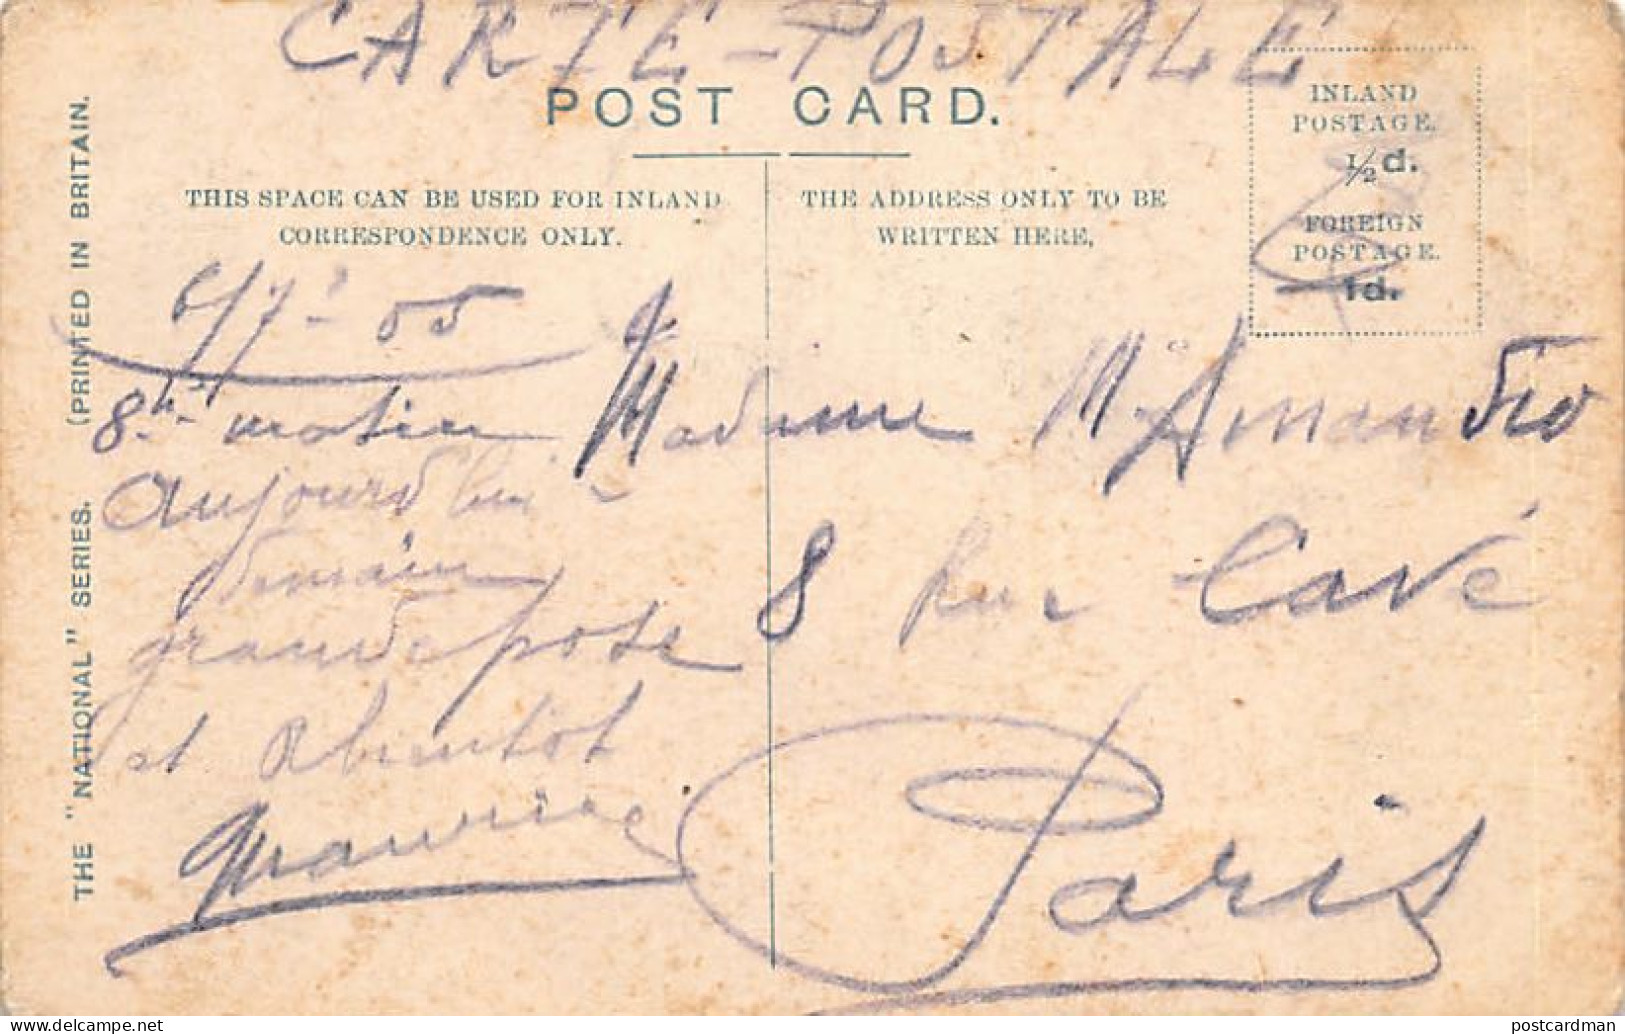 CARTE-POSTALE
POST CARD.
THIS SPACE CAN BE USED FOR INLAND
CORRESPONDENCE ONLY.
THE ADDRESS ONLY TO BE
WRITTEN HERE,
INLAND
POSTAGE.
½d.
FOREIGN
POSTAGE.
1d.
THE "NATIONAL" SERIES. (PRINTED IN BRITAIN.
6/7-05
8h matin
aujourd'hui
demain
grande pose
et Abientot
Maurice
Madame M. Amandio
8 Rue Cavé
Paris
postcardman